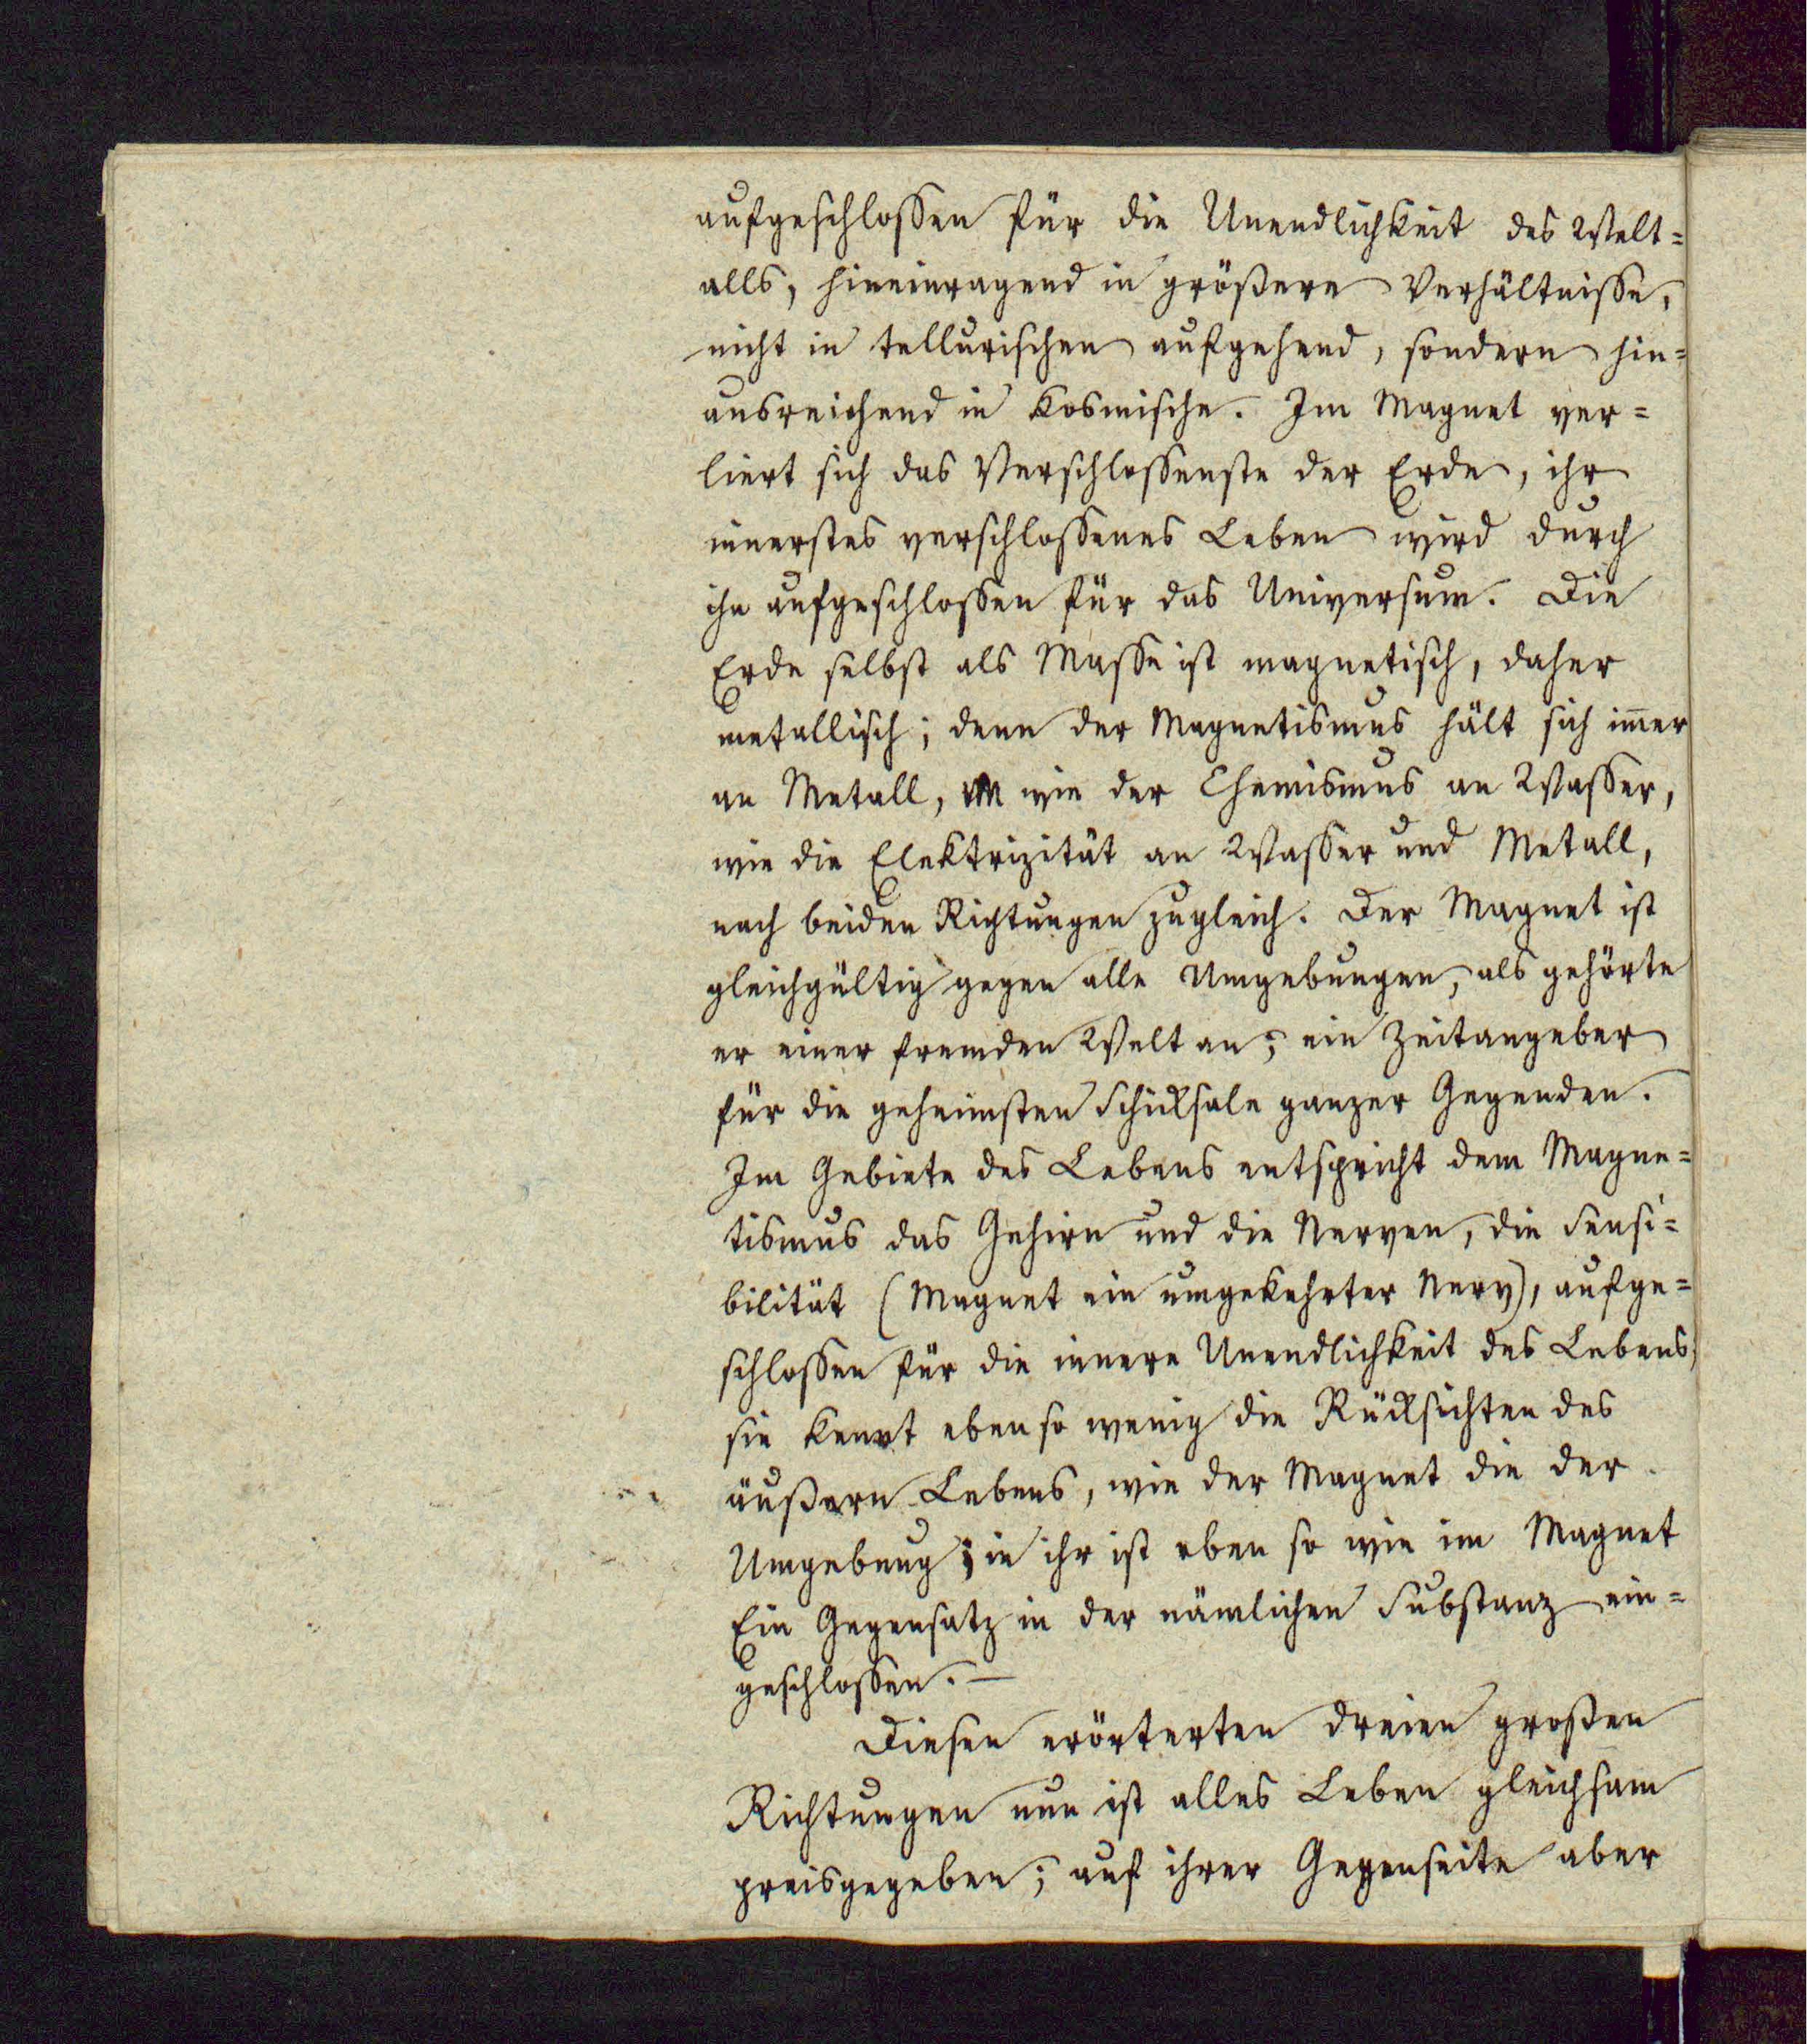 aufgeschlossen für die Unendlichkeit des Welt=
alls, hineinragend in größere Verhältnisse,
nicht in tellurischen aufgehend, sondern hin=
ausreichend in kosmische. Im Magnet ver=
liert sich das Verschlossenste der Erde, ihr
innerstes verschlossenes Leben wird durch
ihn aufgeschlossen für das Universum. Die
Erde selbst als Masse ist magnetisch, daher
metallisch; denn der Magnetismus hält sich im̄er
an Metall, wie der Chemismus an Wasser,
wie die Elektrizität an Wasser und Metall,
nach beiden Richtungen zugleich. Der Magnet ist
gleichgültig gegen alle Umgebungen, als gehörte
er einer fremden Welt an; ein Zeitangeber
für die geheimsten Schicksale ganzer Gegenden.
Im Gebiete des Lebens entspricht dem Magne=
tismus das Gehirn und die Nerven, die Sensi=
bilität (Magnet ein umgekehrter Nerv), aufge=
schlossen für die innere Unendlichkeit des Lebens;
sie kennt eben so wenig die Rücksichten des
äußern Lebens, wie der Magnet die der
Umgebung; in ihr ist eben so wie im Magnet
Ein Gegensatz in der nämlichen Substanz ein=
geschlossen. —
Diesen erörterten dreien großen
Richtungen nun ist alles Leben gleichsam
preisgegeben; auf ihrer Gegenseite aber